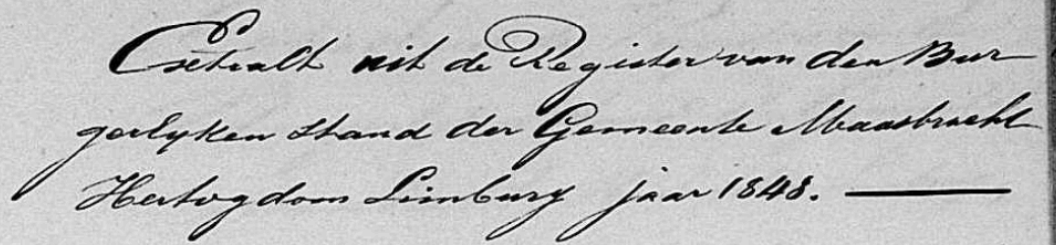 Extrakt uit de Register van den Bur-
gerlyken Stand der Gemeente Maasbracht
Hertogdom Limburg jaar 1848. —